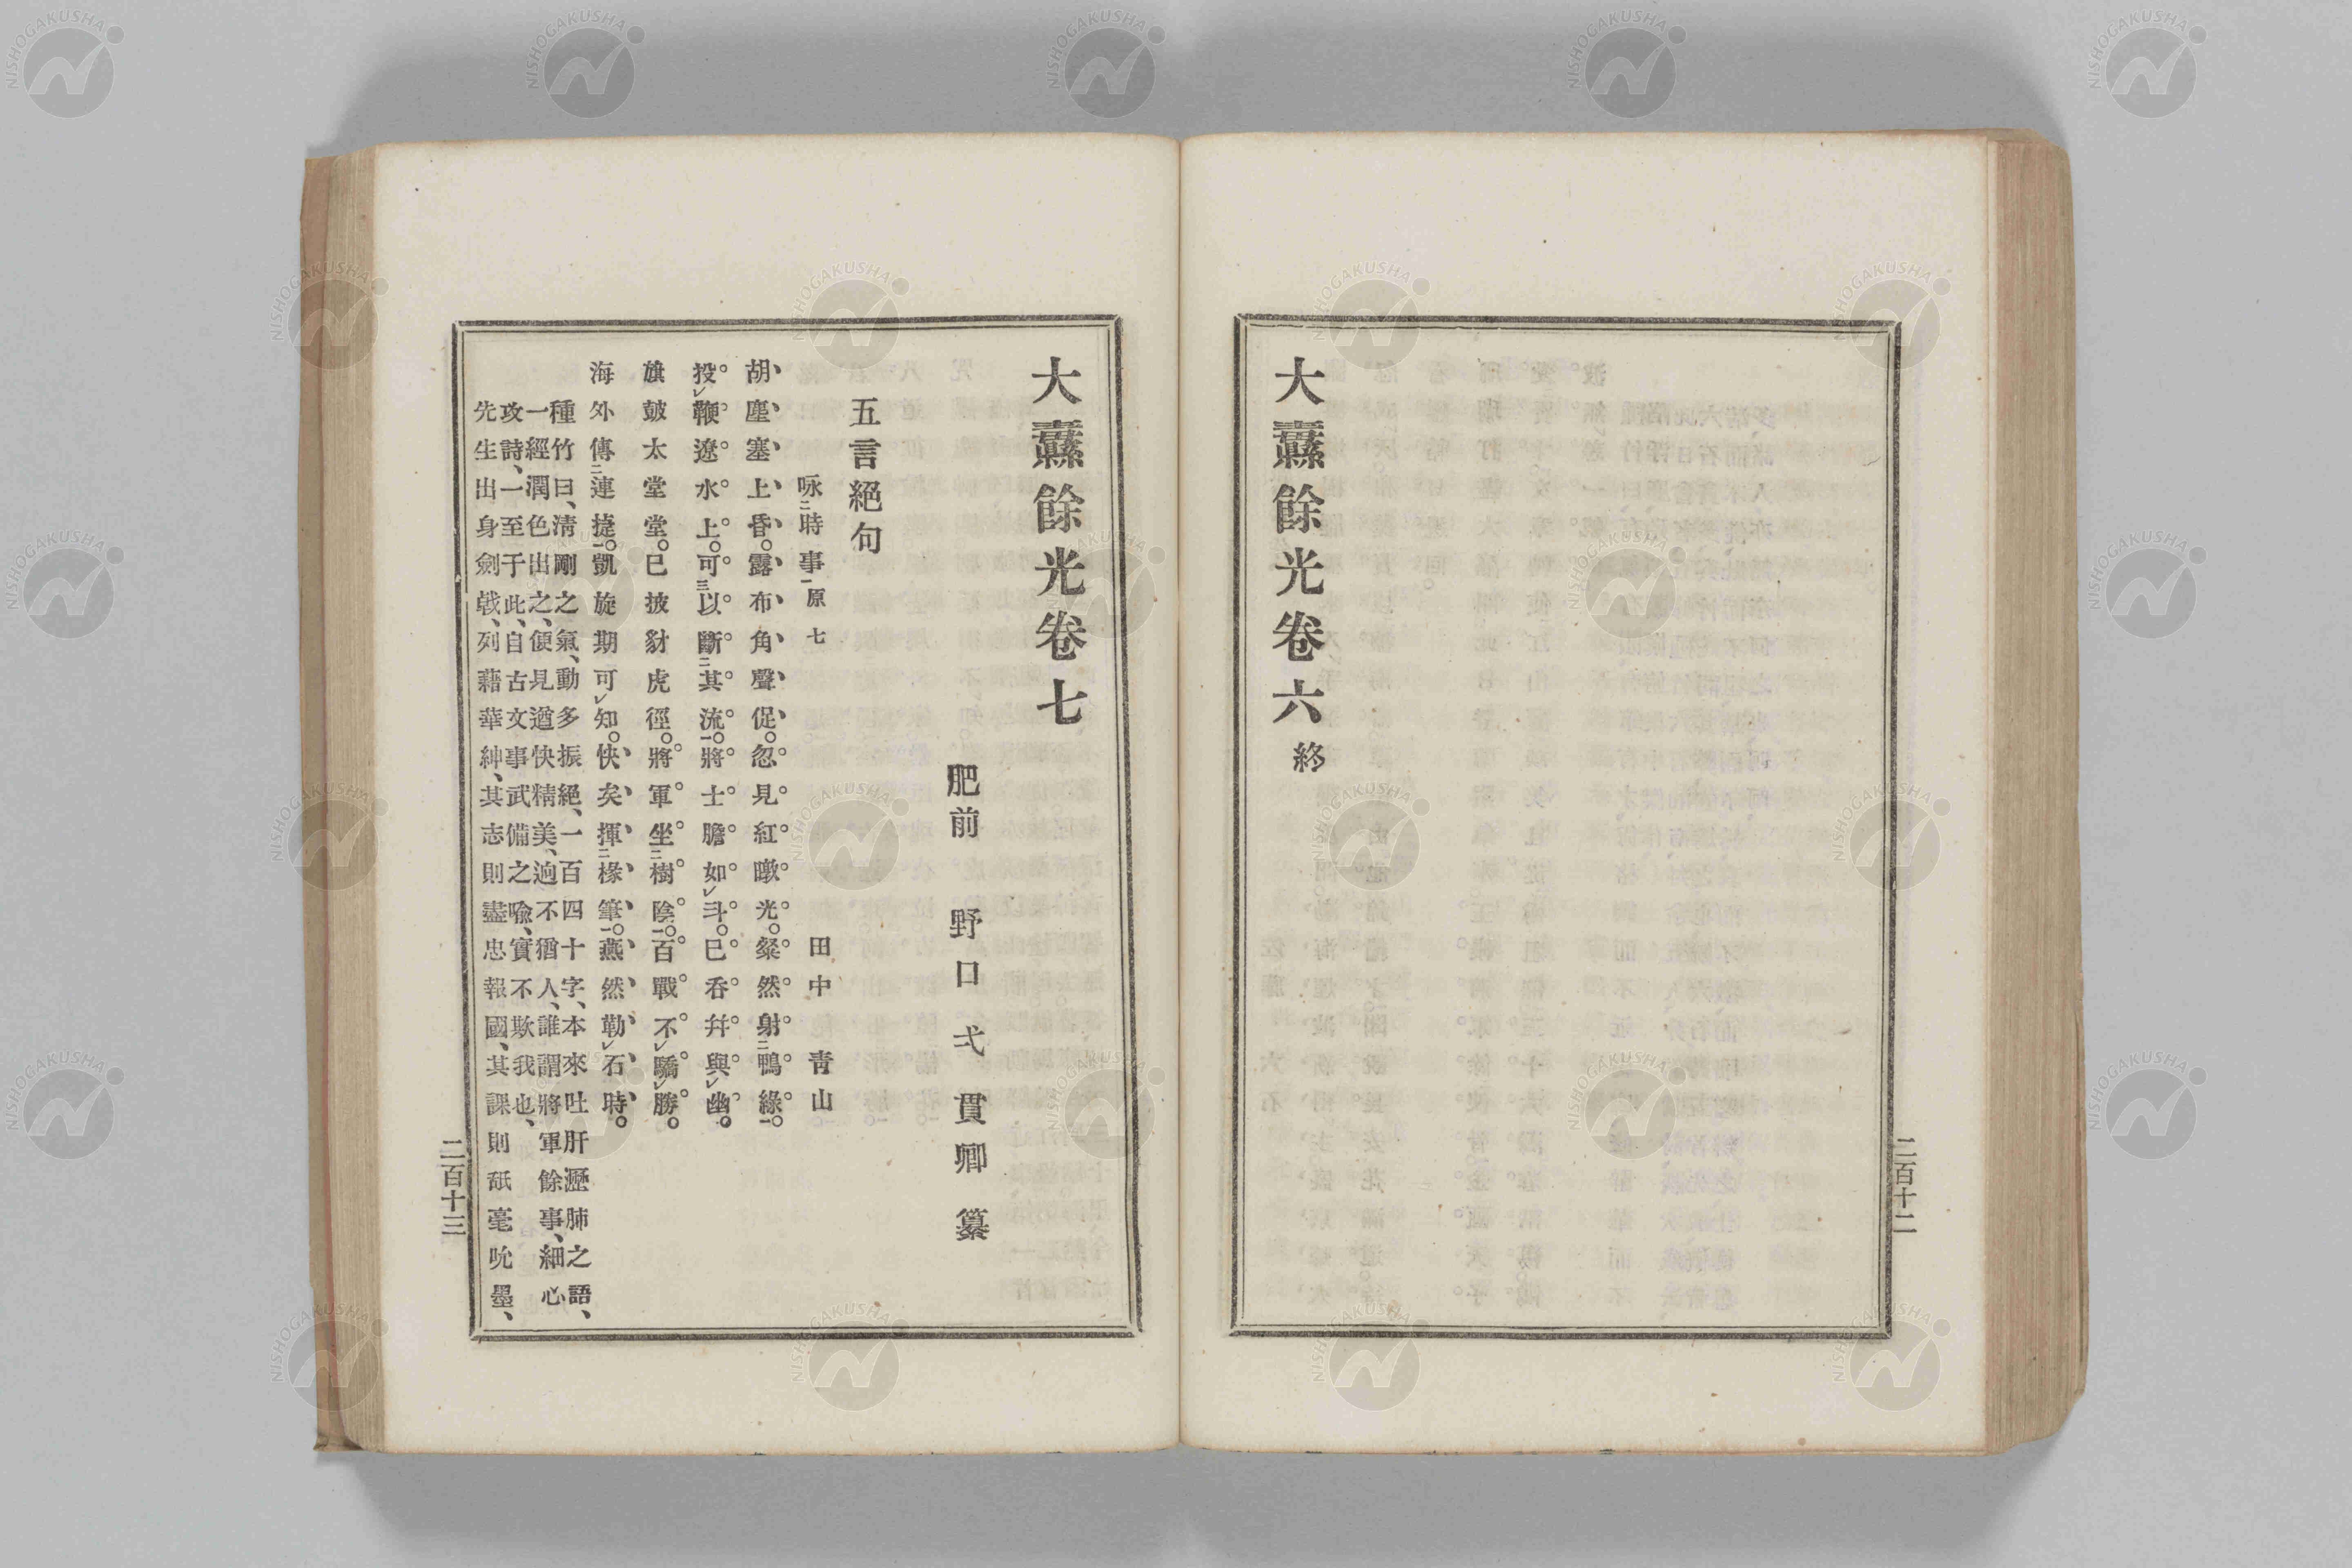 大纛餘光卷六 終
二百十二
大纛餘光卷七
肥前 野口弌貫卿 纂
五言絕句
咏二時事一原七 田中青山
胡塵塞上昏。露布角聲促。忽見紅暾光。粲然射二鴨綠一。
投レ鞭遼水上。可三以斷二其流一。將士膽如レ斗。已呑幷與レ幽。
旗皷太堂堂。已披豺虎徑。將軍坐二樹陰一。百戰不レ驕レ勝。
海外傳二連捷一。凱旋期可レ知。快矣揮二椽筆一。燕然勒レ石時。
種竹曰、淸剛之氣、動多振絕、一百四十字、本來吐肝瀝肺之語、
一經潤色出之、便見遒快精美、逈不猶人、誰謂將軍餘事、細心
攻詩、一至于此、自古文事武備之喩、實不欺我也、
先生出身劍戟、列藉華紳、其志則盡忠報國、其課則舐毫吮墨、
二百十三
NISHOGAKUSHA